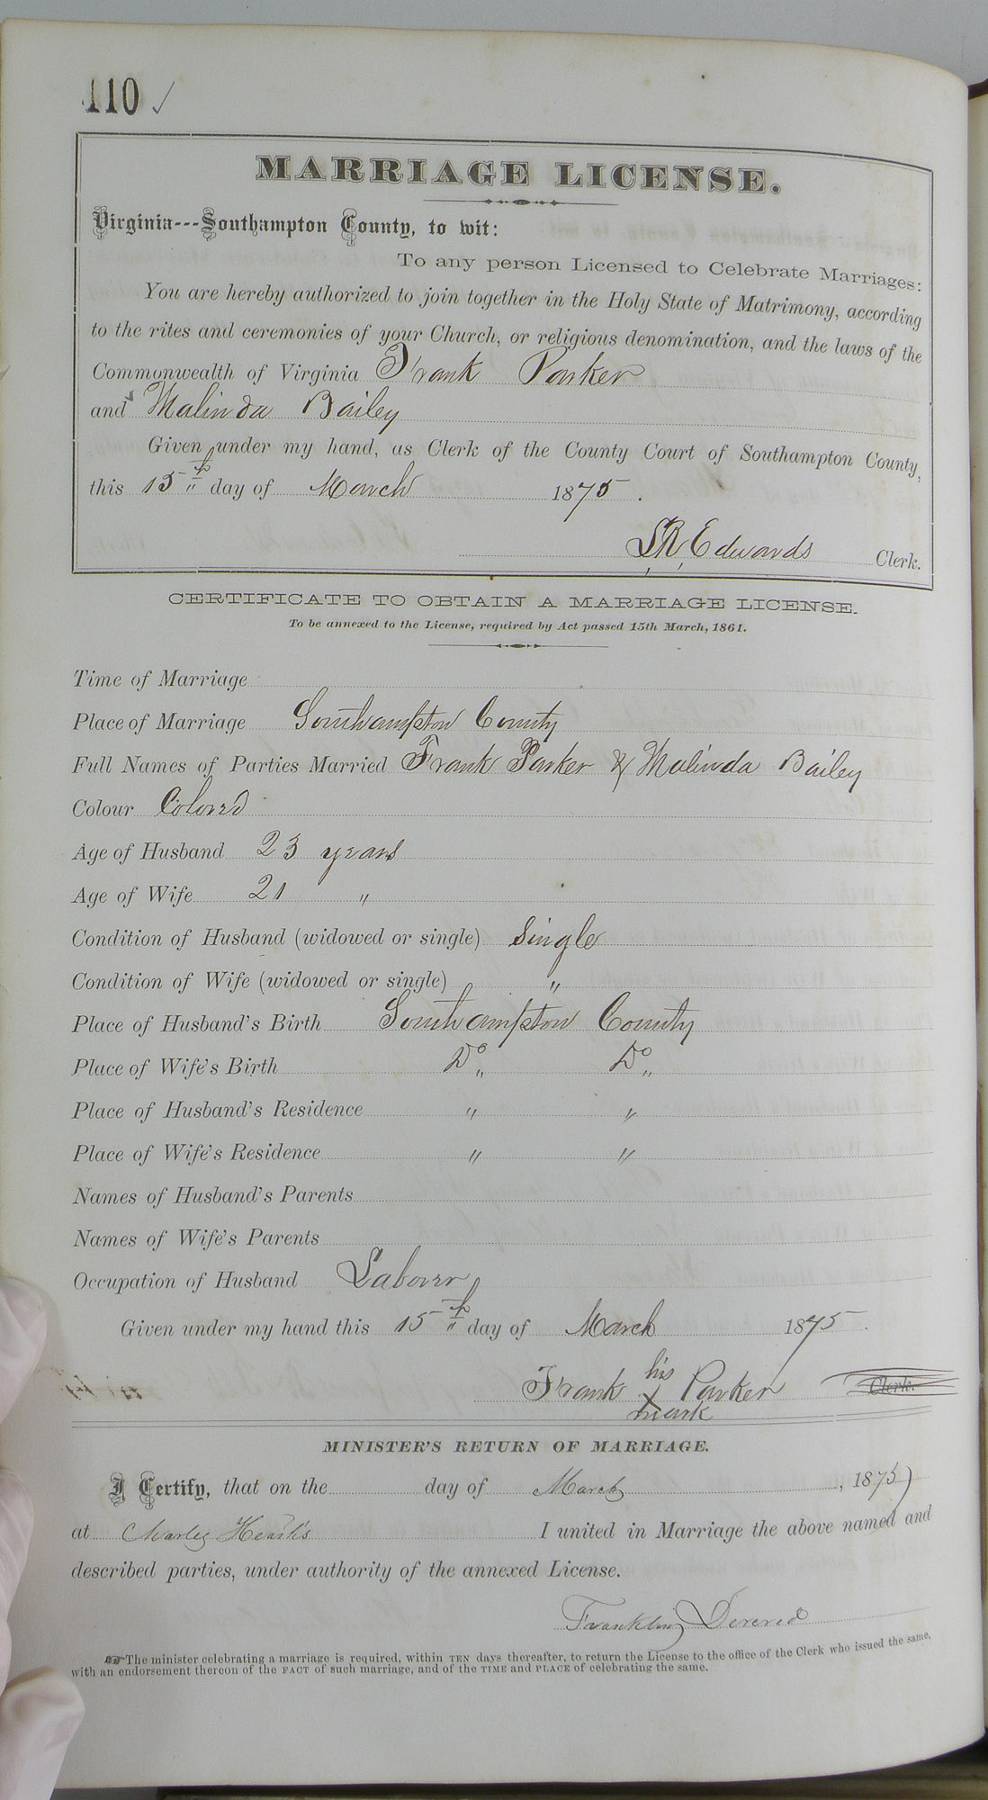 110 ✓
MARRIAGE LICENSE.
Virginia---Southampton County, to wit:
To any person Licensed to Celebrate Marriages:
You are hereby authorized to join together in the Holy State of Matrimony, according
to the rites and ceremonies of your Church, or religious denomination, and the laws of the
Commonwealth of Virginia Frank Parker
and Malinda Bailey
Given under my hand, as Clerk of the County Court of Southampton County,
this 15th day of March 1875.
L.R. Edwards Clerk.
CERTIFICATE TO OBTAIN A MARRIAGE LICENSE.
To be annexed to the License, required by Act passed 15th March, 1861.
Time of Marriage
Place of Marriage Southampton County
Full Names of Parties Married Frank Parker & Malinda Bailey
Colour Colored
Age of Husband 23 years
Age of Wife 21 "
Condition of Husband (widowed or single) Single
Condition of Wife (widowed or single) "
Place of Husband's Birth Southampton County
Place of Wife's Birth Do Do
Place of Husband's Residence " "
Place of Wife's Residence " "
Names of Husband's Parents
Names of Wife's Parents
Occupation of Husband Laborer
Given under my hand this 15th day of March 1875.
Frank his X mark Parker Clerk.
MINISTER'S RETURN OF MARRIAGE.
I Certify, that on the day of March, 1875
at I united in Marriage the above named and
described parties, under authority of the annexed License.
Franklin
The minister celebrating a marriage is required, within TEN days thereafter, to return the License to the office of the Clerk who issued the same,
with an endorsement thereon of the FACT of such marriage, and of the TIME and PLACE of celebrating the same.